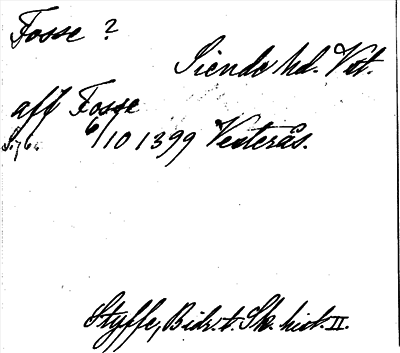 Fosse ?
Siende hd. Vst.
aff Fosse
6/10 1399 Vesterås.
Styffe, Bidr. t. Sk. hist. II.